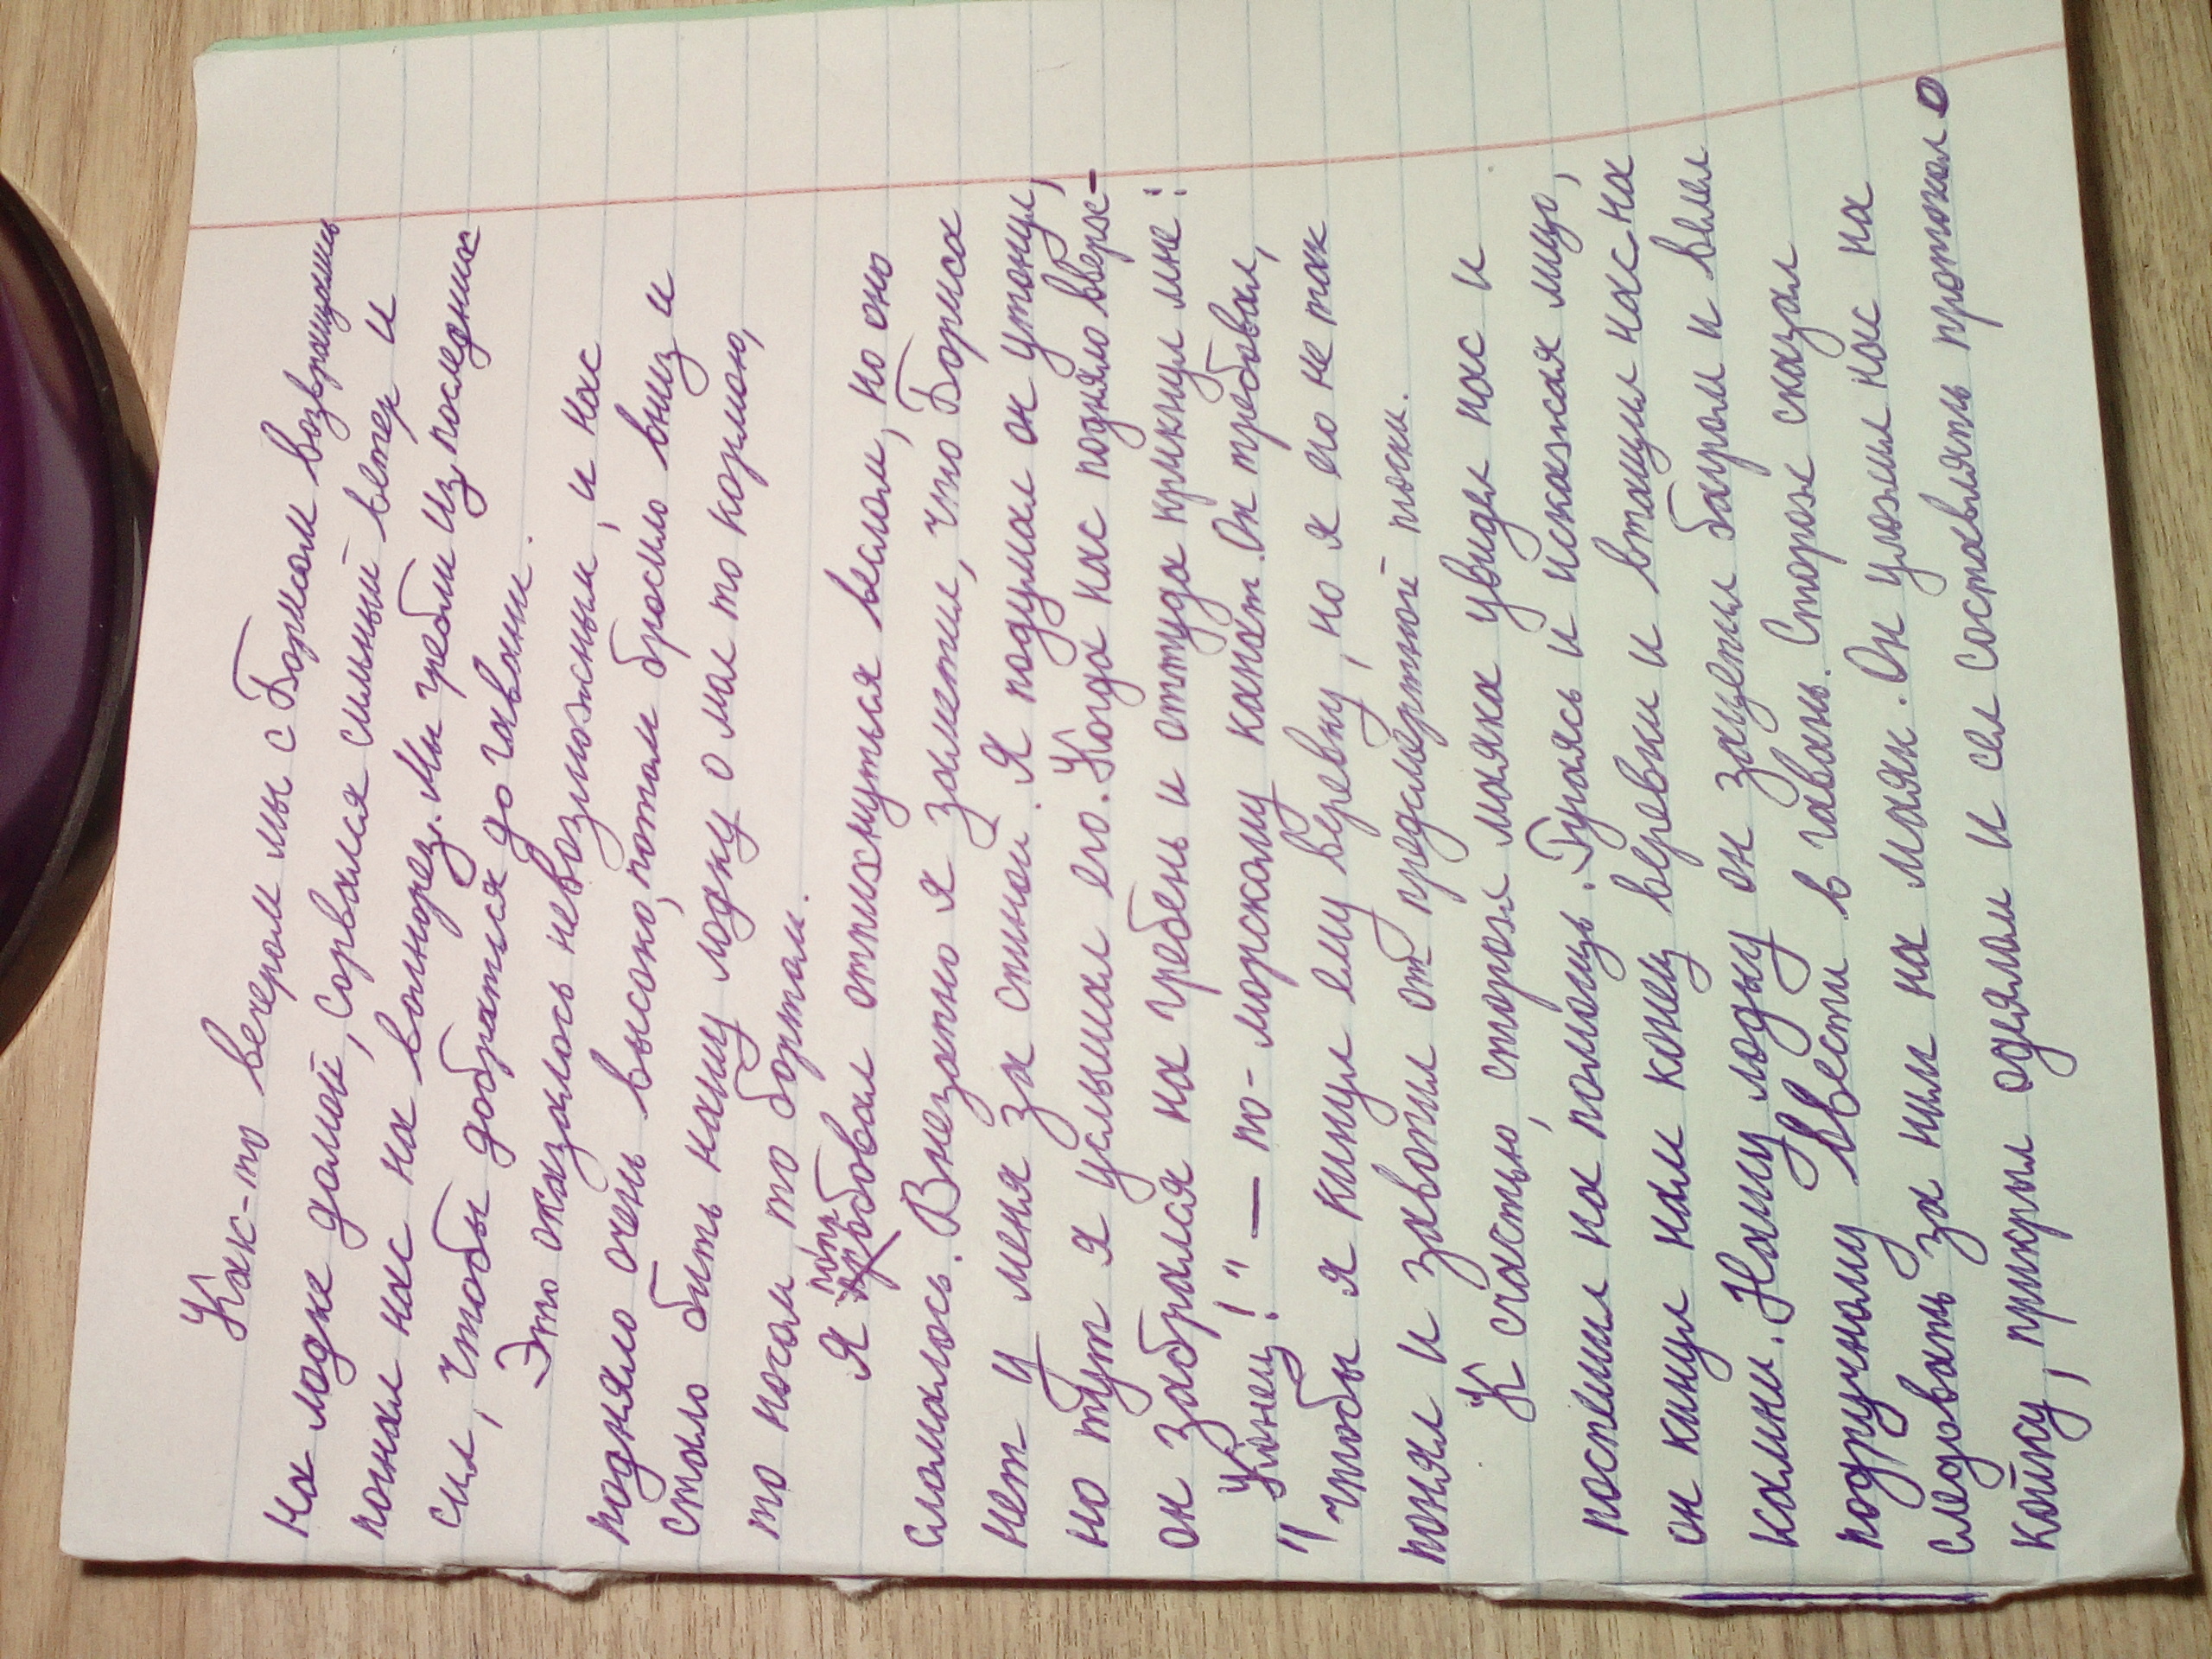 Как-то вечером мы с Борисом возвращались
на лодке домой, сорвался сильный ветер и
погнал нас на волнорез. Мы гребли из последних
сил, чтобы добраться до гавани.
Это оказалось невозможным, и нас
подняло очень высоко, потом бросило вниз и
стало бить нашу лодку о мол то кормою,
то носом то бортом.
Я попробовал отпихнуться веслом, но оно
сломалось. Внезапно я заметил, что Бориса
нет у меня за спиной. Я подумал он утонул,
но тут я услышал его. Когда нас подняло вверх-
он забрался на гребень и оттуда крикнул мне:
"Конец!" — по-морскому канат. Он требовал,
чтобы я кинул ему веревку, но я его не так
понял и завопил от предсмертной тоски.
К счастью, сторож маяка увидел нас и
поспешил на помощь. Ругаясь и искажая лицо,
он кинул нам конец веревки и втащил нас на
камни. Нашу лодку он зацепил багром и велел
подручному ввести в гавань. Сторож сказал
следовать за ним на маяк. Он уложил нас на
койку, прикрыл одеялом и сел составлять протокол.